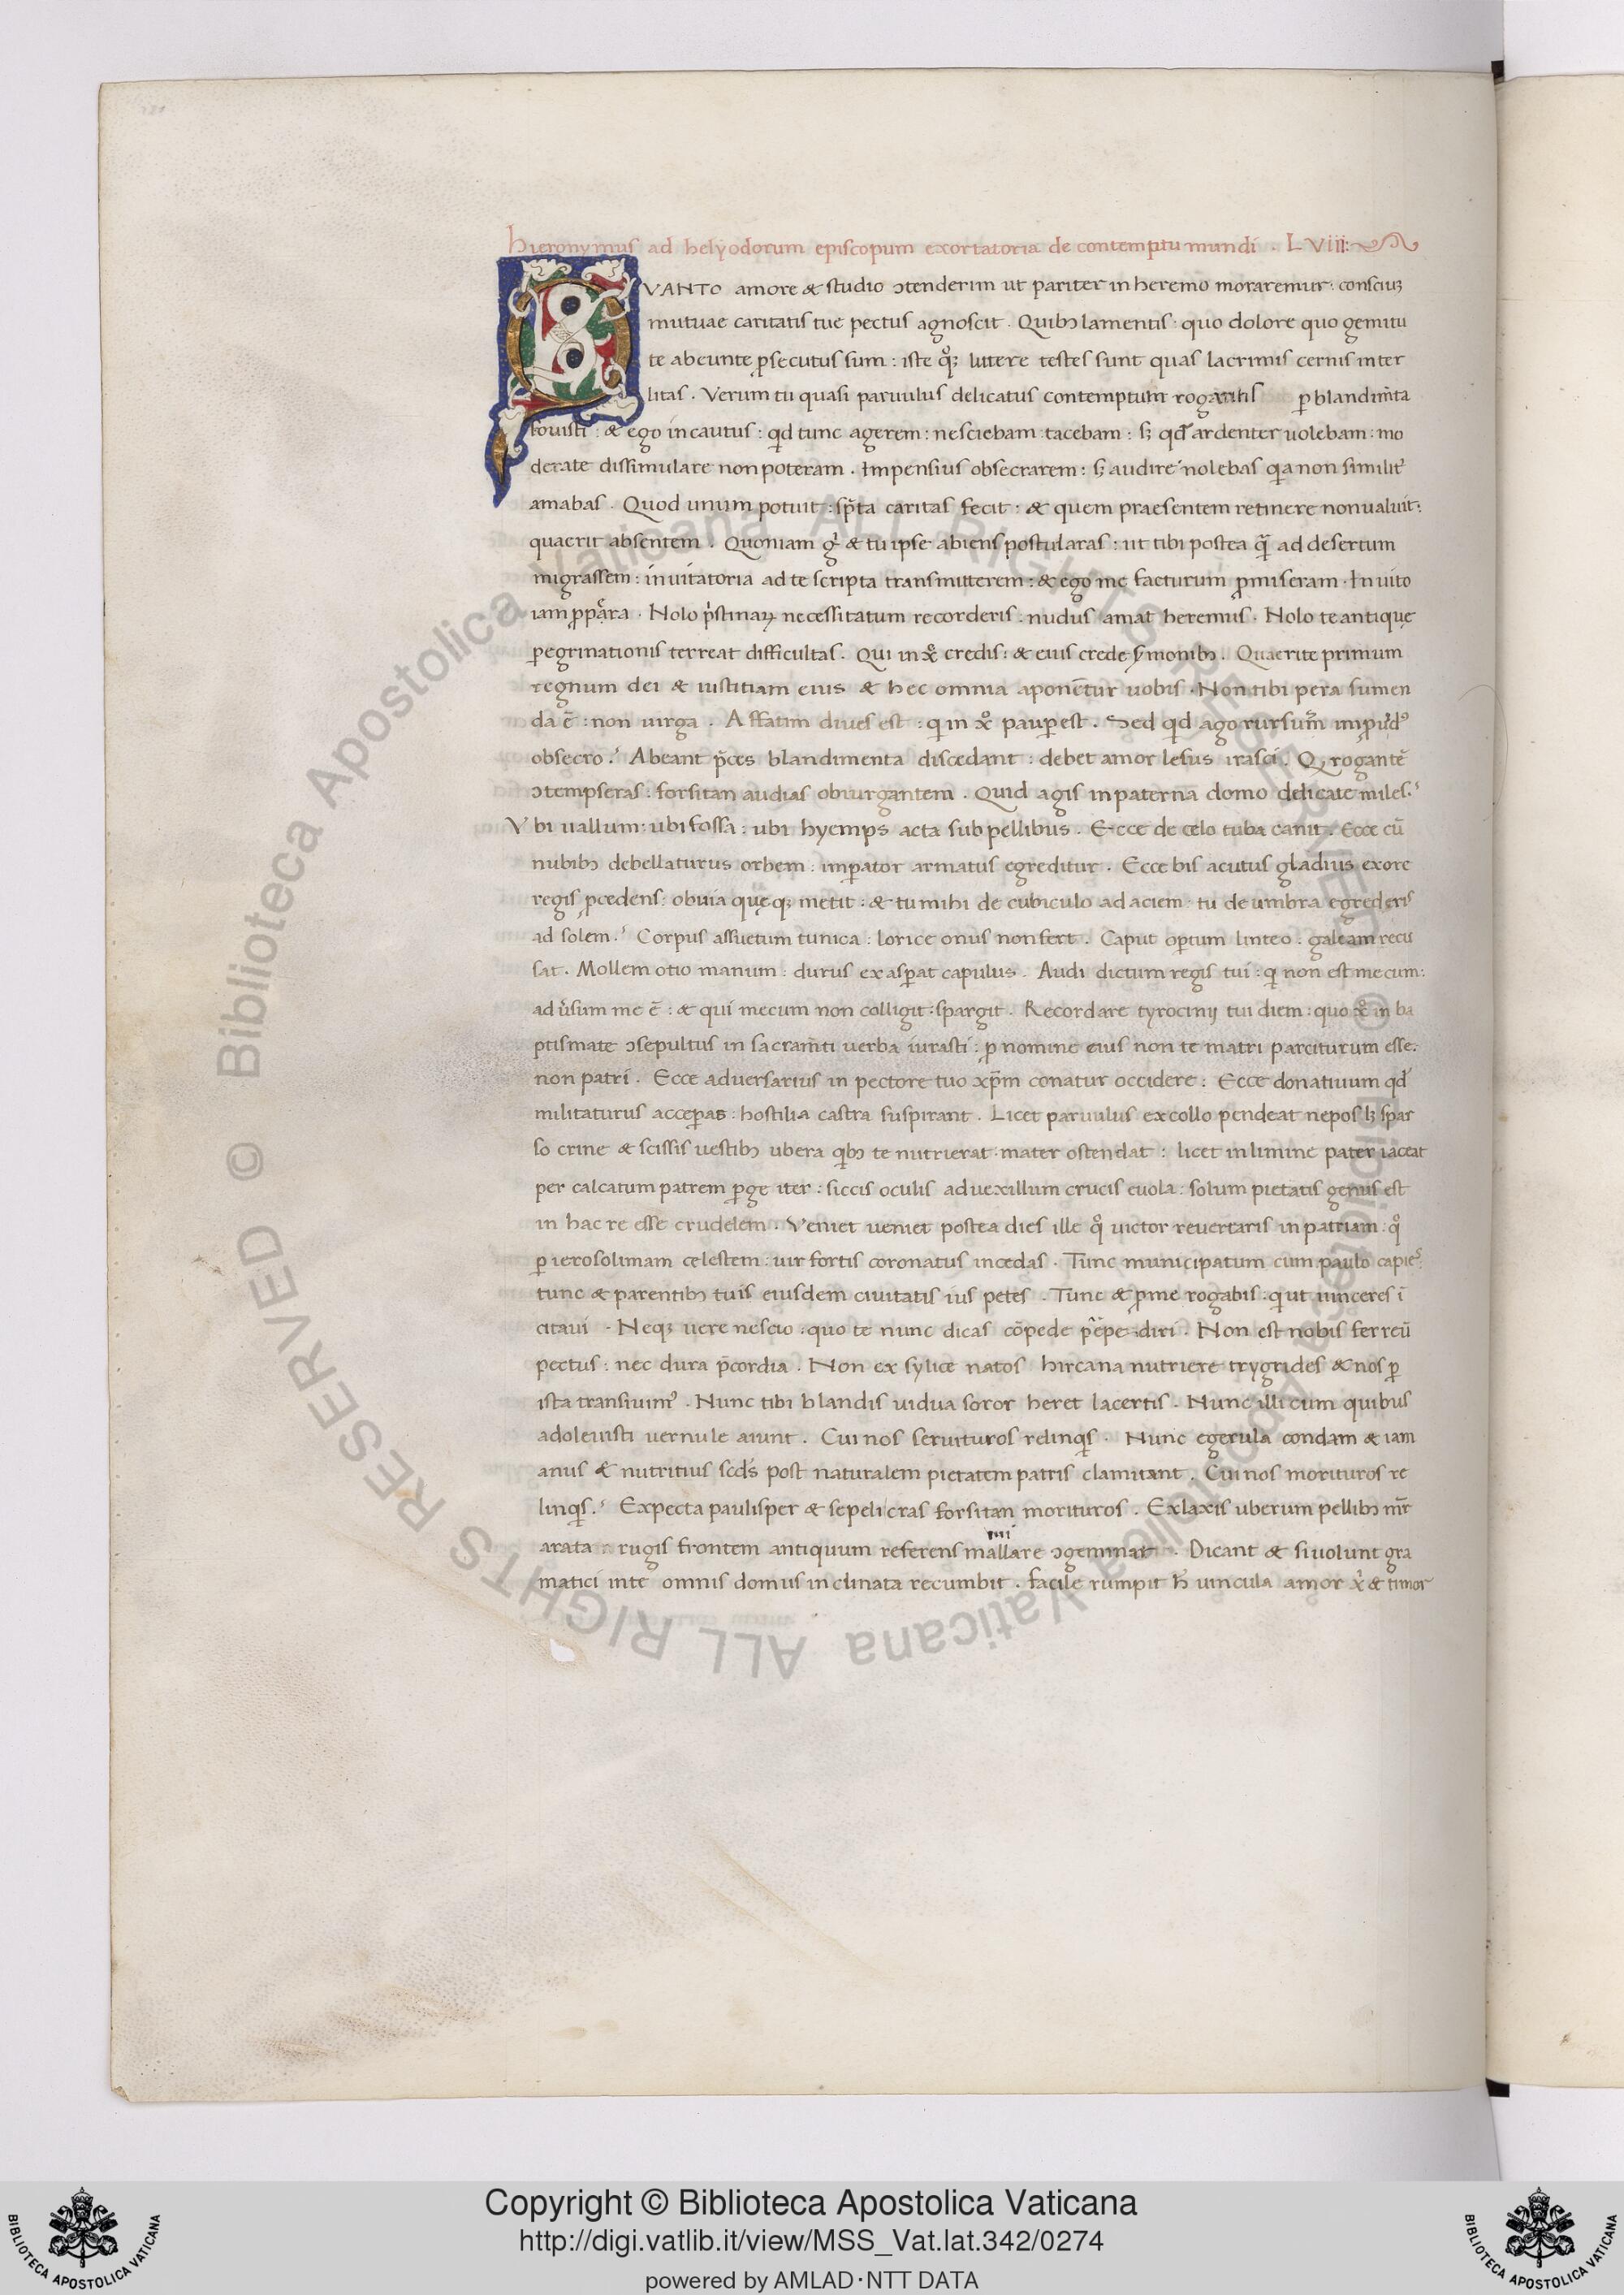 hieronymus ad helyodorum episcopum exortatoria de contemptu mundi . LVIII:
QVANTO amore & studio ɔtenderim ut pariter in heremo moraremur: conscius
mutuae caritatis tue pectus agnoscit . Quibꝫ lamentis: quo dolore quo gemitu
te abeunte ꝓsecutus sum : iste qͦꝫ littere testes sunt quas lacrimis cernis inter
litas . Verum tu quasi paruulus delicatus contemptum rogantis ꝑ blandim̃ta
fouisti : & ego incautus : qid tunc agerem : nesciebam tacebam : sꝫ qđ ardenter uolebam : mo
derate dissimulare non poteram . Impensius obsecrarem : sꝫ audire nolebas qia non similit̉
amabas . Quod unum potuit : sp̃ta caritas fecit : & quem praesentem retinere non ualuit :
quaerit absentem . Quoniam gͥ & tu ipse abiens postularas : ut tibi postea q̃ ad desertum
migrassem : inuitatoria ad te scripta transmitterem : & ego me facturum ꝓmiseram . Inuito
iam ꝓpa̓ra . Nolo pͥstinaꝝ necessitatum recorderis : nudus amat heremus . Nolo te antique̜
ꝑegrinationis terreat difficultas . Qui in xͦ credis : & eius crede s̓monibꝫ . Quaerite primum
regnum dei & iustitiam eius & hec omnia aponẽtur uobis . Non tibi pera sumen
da ẽ : non uirga . Affatim diues est : qi in xͦ pauꝑ est . Sed qid ago rursum̃ imꝓuidꝰ
obsecro ? Abeant p̃ces blandimenta discedant : debet amor lesus irasci . Qi rogantẽ
ɔtempseras : forsitan audias obiurgantem . Quid agis in paterna domo delicate miles ?
Vbi uallum : ubi fossa : ubi hyemps acta sub pellibus . Ecce de celo tuba canit . Ecce cũ
nubibꝫ debellaturus orbem : imꝑator armatus egreditur . Ecce bis acutus gladius ex ore
regis ꝓcedens : obuia que̜qꝫ metit : & tu mihi de cubiculo ad aciem : tu de umbra egrederis
ad solem ? Corpus assuetum tunica : lorice onus non fert . Caput oꝑtum linteo : galeam recu
sat . Mollem otio manum : durus exasꝑat capulus . Audi dictum regis tui : qi non est mecum :
ad u̓sum me ẽ : & qui mecum non colligit : spargit . Recordare tyrocinij tui diem : quo xͦ in ba
ptismate ɔsepultus in sacram̃ti uerba iurasti : ꝓ nomine eius non te matri parciturum esse :
non patri . Ecce aduersarius in pectore tuo xp̃m conatur occidere : Ecce donatiuum qđ
militaturus acceꝑas : hostilia castra suspirant . Licet paruulus ex collo pendeat nepos lꝫ spar
so crine & scissis uestibꝫ ubera qibꝫ te nutrierat mater ostendat : licet in limine pater iaceat
per calcatum patrem ꝑge iter : siccis oculis ad uexillum crucis euola : solum pietatis genus est
in hac re esse crudelem . Veniet ueniet postea dies ille qͦ uictor reuertaris in patriam : qͦ
ꝑ ierosolimam celestem : uir fortis coronatus incedas . Tunc municipatum cum paulo capies :
tunc & parentibꝫ tuis eiusdem ciuitatis ius petes . Tunc & ꝓ me rogabis : qi ut uinceres ĩ
citaui . Neqꝫ uere nescio : quo te nunc dicas cõpede diri . Non est nobis ferreũ
pectus : nec dura p̃cordia . Non ex sylice natos hircana nutriere trygrides & nos ꝑ
ista transiuimꝰ . Nunc tibi blandis uidua soror heret lacertis . Nunc illi cum quibus
adoleuisti uernule aiunt . Cui nos seruituros relinqis . Nunc egerula condam & iam
anus & nutritius scđs post naturalem pietatem patris clamitant . Cui nos morituros re
linqis ? Expecta paulisper & sepeli cras forsitan morituros . Ex laxis uberum pellibꝫ mr̃
arata rugis frontem antiquum referens mallare ɔgeminat . Dicant & si uolunt gra
matici in te omnis domus inclinata recumbit . facile rumpit h̃ uincula amor xͥ & timor
© Biblioteca Apostolica Vaticana ALL RIGHTS RESERVED
Copyright © Biblioteca Apostolica Vaticana
http://digi.vatlib.it/view/MSS_Vat.lat.342/0274
powered by AMLAD·NTT DATA
BIBLIOTECA APOSTOLICA VATICANA
BIBLIOTECA APOSTOLICA VATICANA